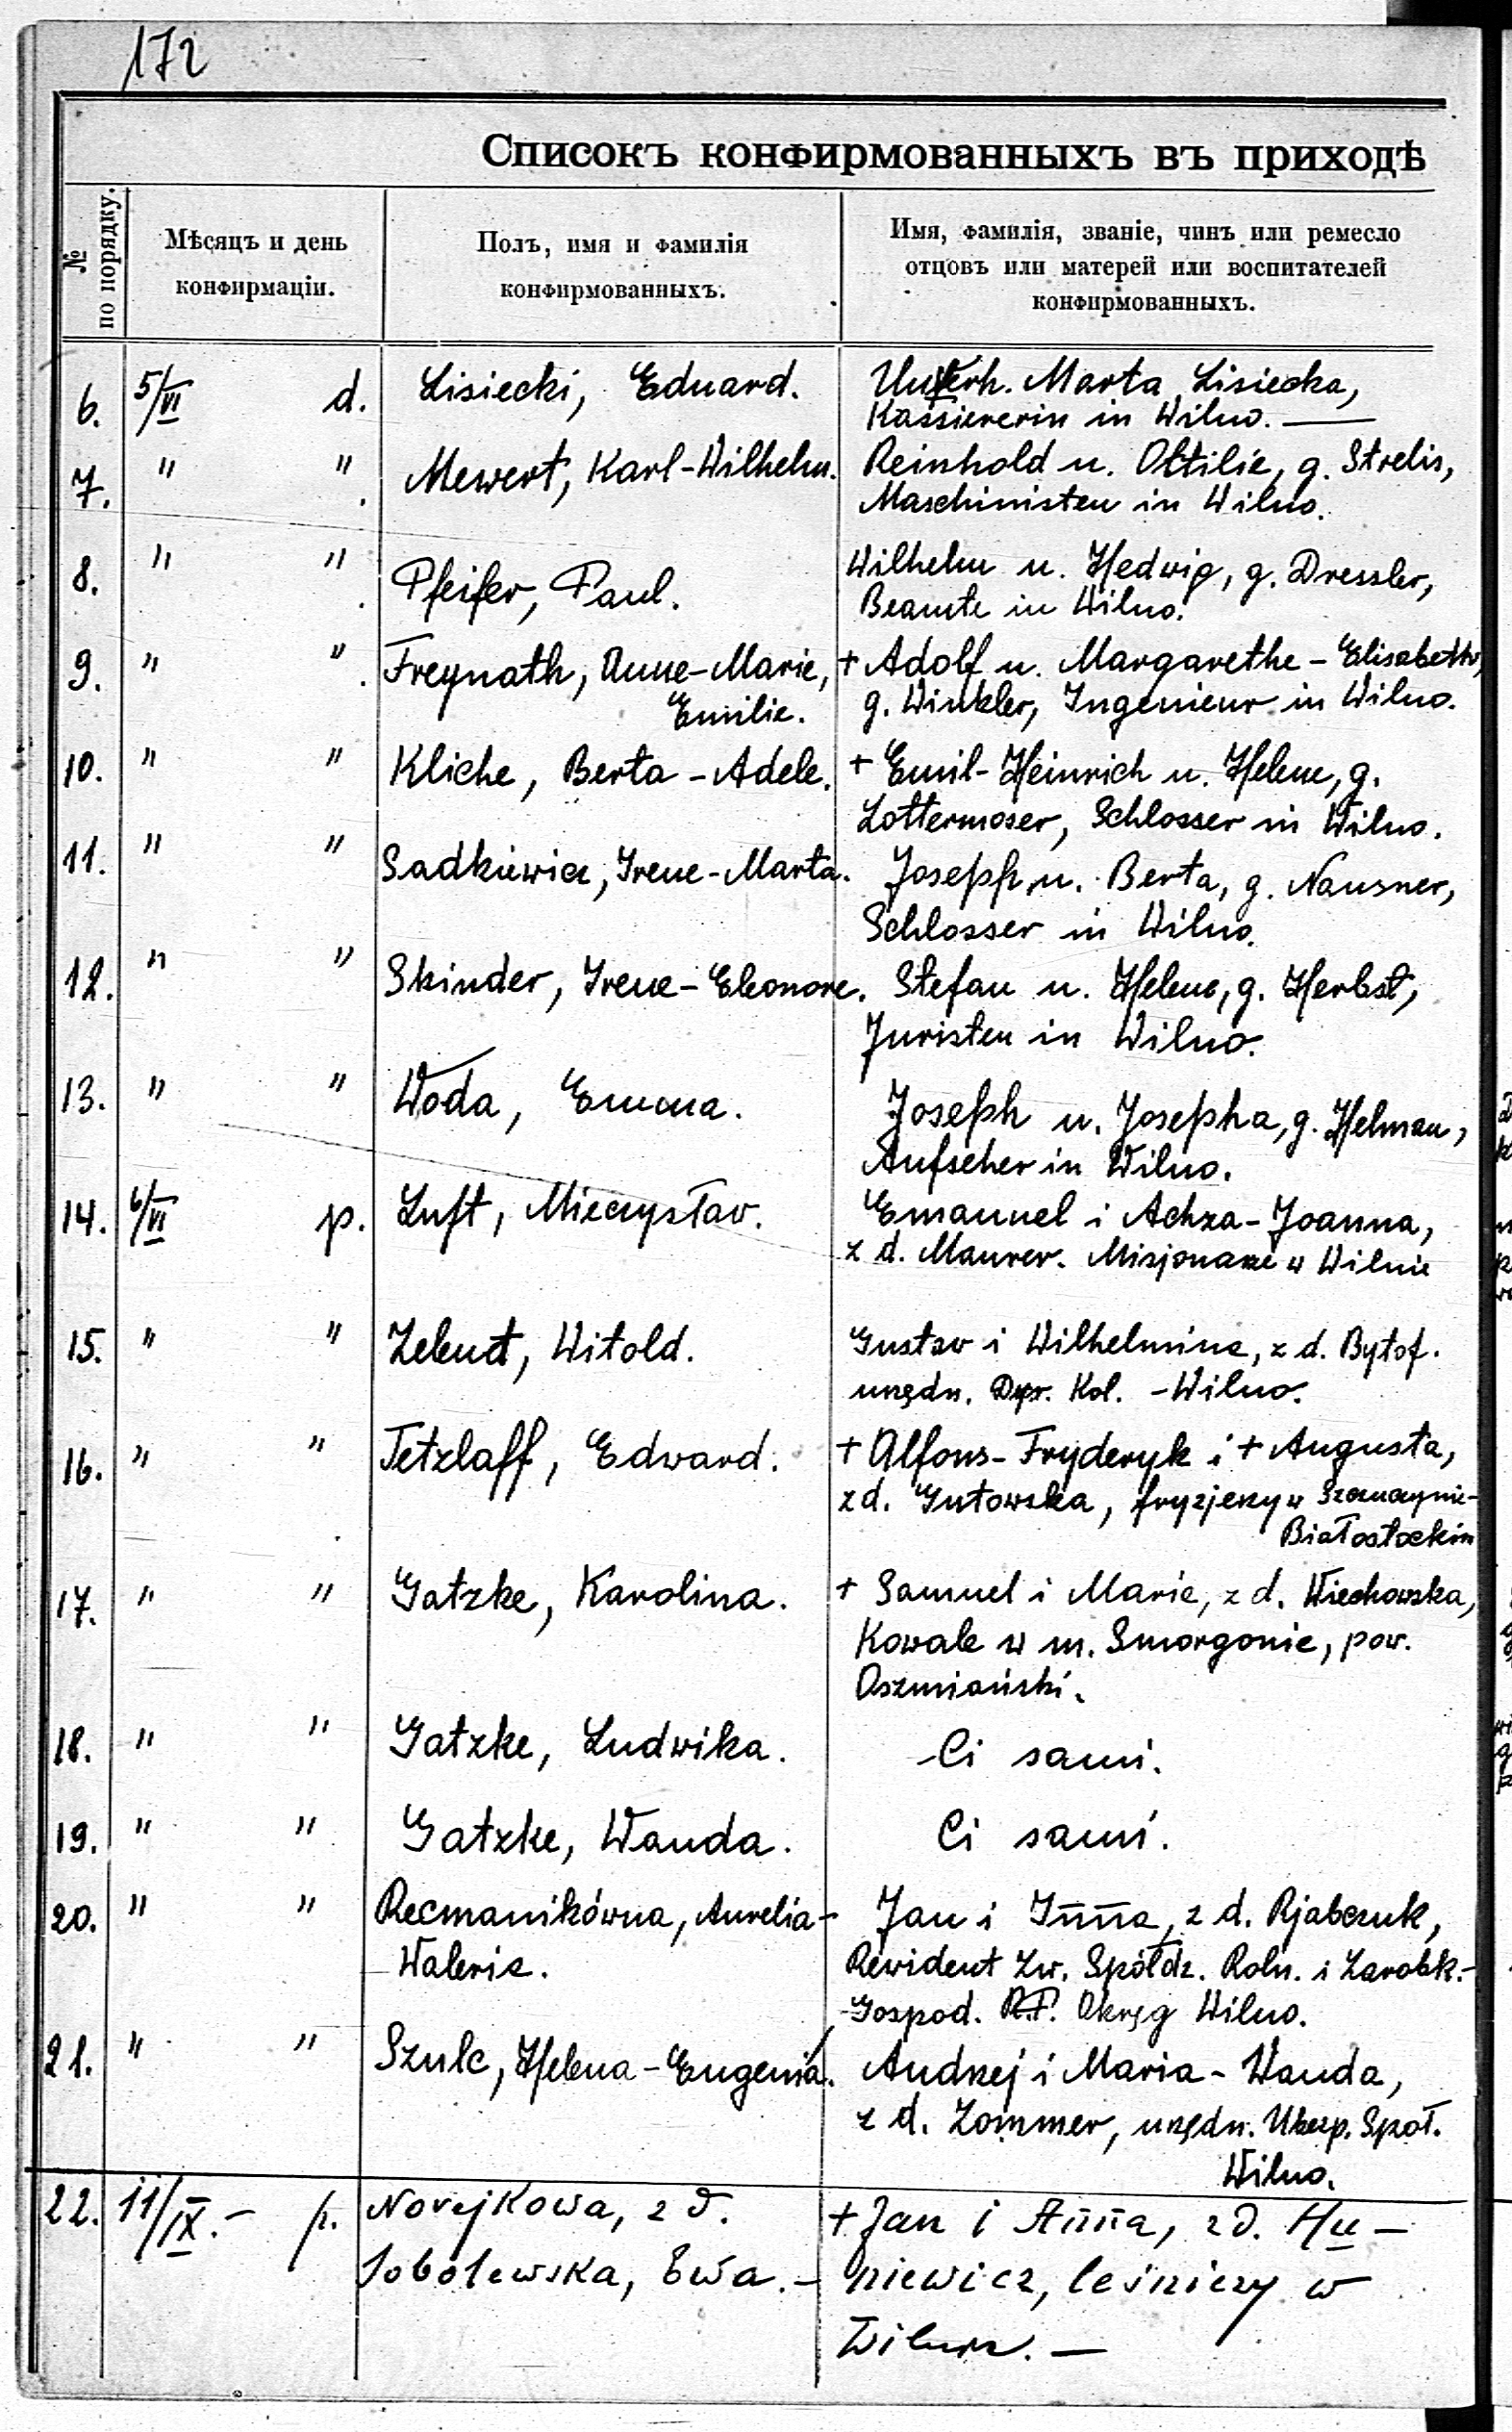 172
Списокъ конфирмованныхъ въ приходѣ
№ по порядку.
Мѣсяцъ и день
конфирмаціи.
Полъ, имя и фамилія
конфирмованныхъ.
Имя, фамилія, званіе, чинъ или ремесло
отцовъ или матерей или воспитателей
конфирмованныхъ.
6. 5/VI d. Lisiecki, Eduard. Marta Lisiecka,
Kassiererin in Wilno. —
7. " " Mewert, Karl-Wilhelm. Reinhold u. Ottilie, g. Strelis,
Maschinisten in Wilno.
8. " " Pfeifer, Paul. Wilhelm u. Hedwig, g. Dressler,
Beamte in Wilno.
9. " " Freynath, Anne-Marie, + Adolf u. Margarethe-Elisabeth,
Emilie. g. Winkler, Ingenieur in Wilno.
10. " " Kliche, Berta-Adele. + Emil-Heinrich u. Helene, g.
Lottermoser, Schlosser in Wilno.
11. " " Sadkiewicz, Irene-Marta. Joseph u. Berta, g. Nausner,
Schlosser in Wilno.
12. " " Skinder, Irene-Eleonore. Stefan u. Helene, g. Herbst,
Juristen in Wilno.
13. " " Woda, Emma. Joseph u. Josepha, g. Helman,
Aufseher in Wilno.
14. 6/VI p. Luft, Mieczysław. Emanuel i Achza-Joanna,
z d. Maurer. Misjonarze w Wilnie
15. " " Zelent, Witold. Gustav i Wilhelmina, z d. Bytof.
urzędn. Dyr. Kol. - Wilno.
16. " " Tetzlaff, Edward. + Alfons-Fryderyk i + Augusta,
z d. Gutowska, fryzjerzy w
Białostockim
17. " " Gatzke, Karolina. + Samuel i Marie, z d. Wiechowska,
Kowale w m. Smorgonie, pow.
Oszmiański.
18. " " Gatzke, Ludwika. Ci sami.
19. " " Gatzke, Wanda. Ci sami.
20. " " Recmanikówna, Aurelia- Jan i Inna, z d. Rjabczuk,
Walerie. Rewident Zw. Spółdz. Roln. i Zarobk.-
Gospod. R.P. Okręg Wilno.
21. " " Szulc, Helena-Eugenia. Andrzej i Maria-Wanda,
z d. Zommer, urzędn. Ubezp. Społ.
Wilno.
22. 11/IX.- p. Novejkowa, z d. + Jan i Anna, z d. Hu-
Sobolewska, Ewa.- niewicz, leśniczy w